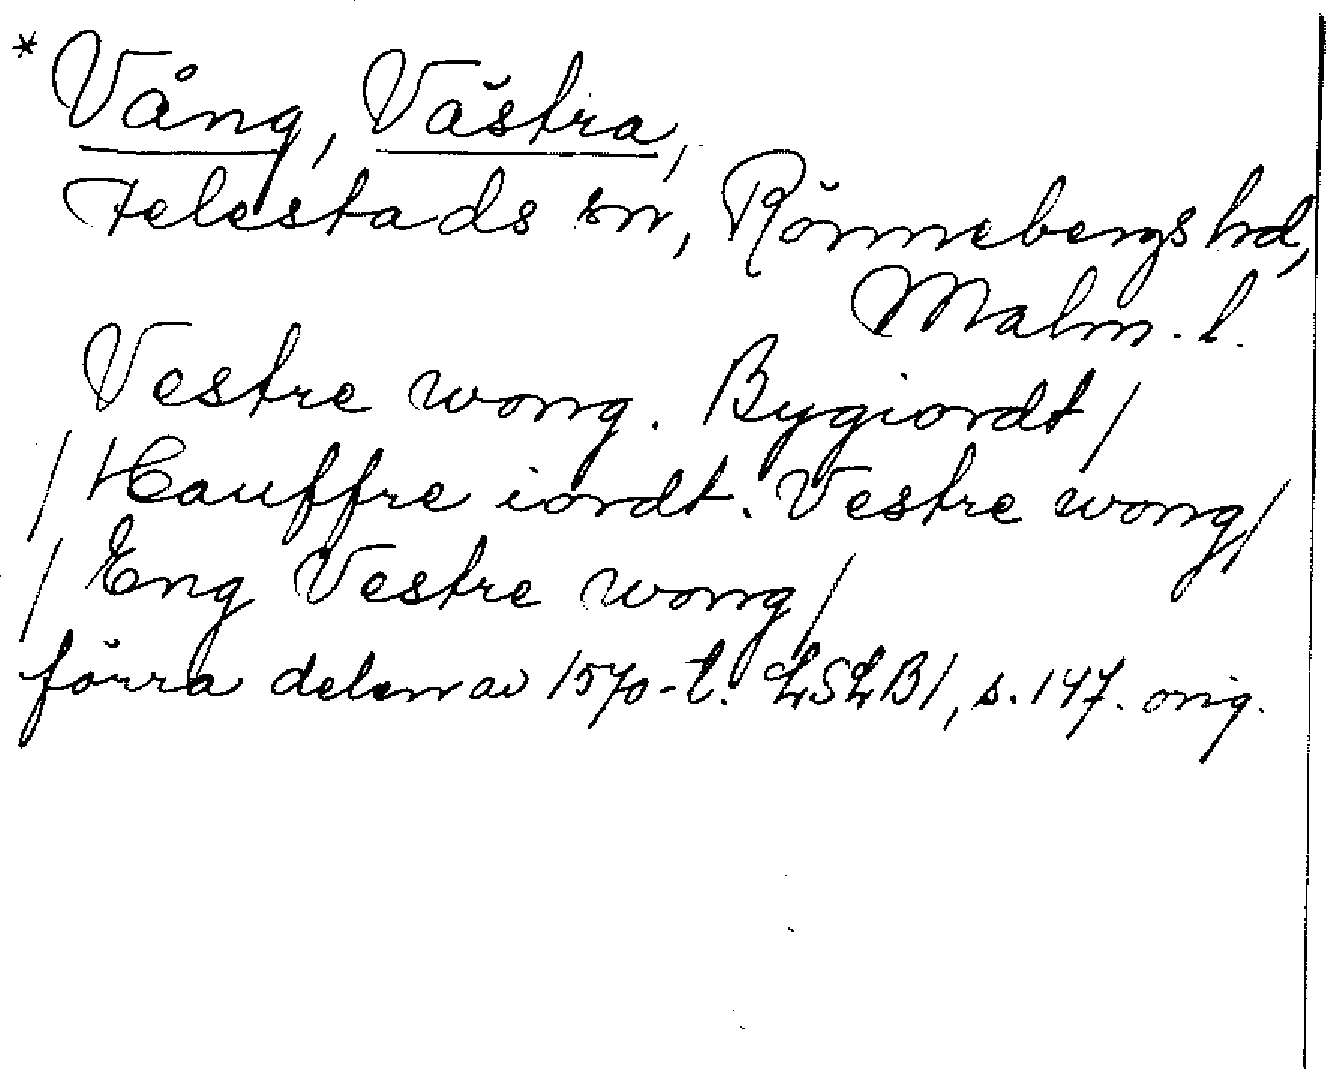 * Vång, Västra,
Felestads sn, Rönnebergs hd,
Malm. l.
Vestre wong. Bygiordt/
/Hauffre iordt. Vestre wong/
/Eng Vestre wong/
förra delen av 1570-t. LSLB1, s. 147. orig.